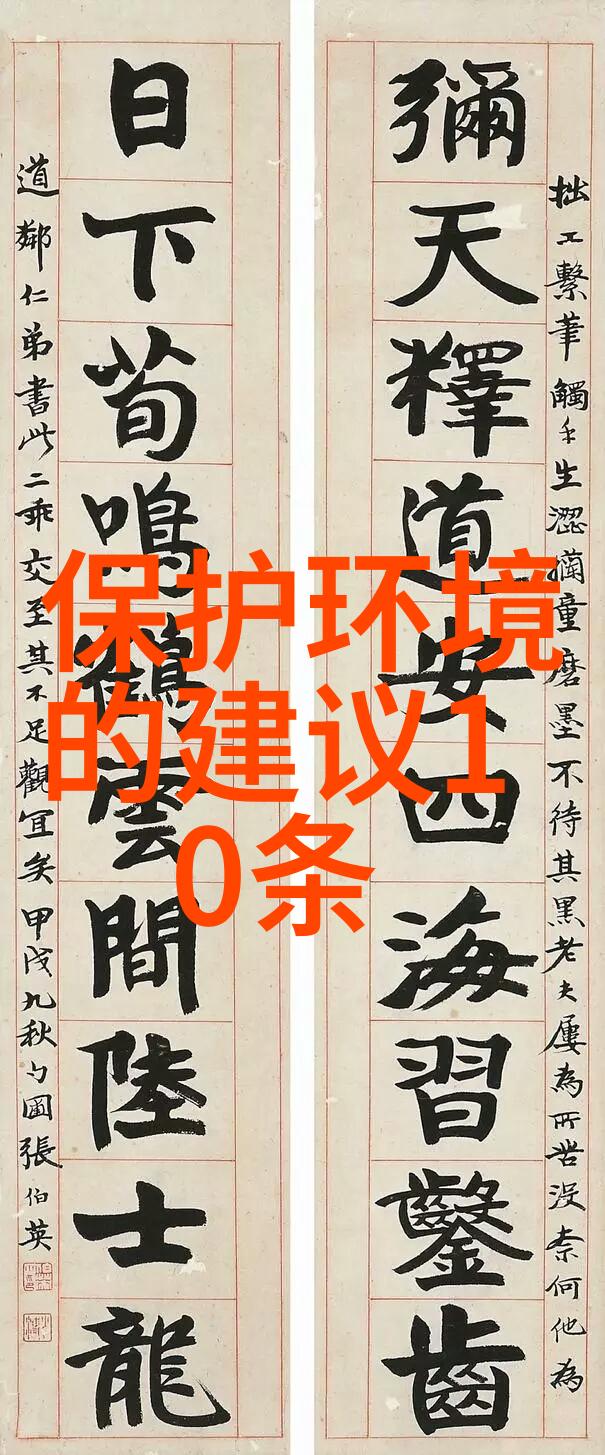 保护环境
的建议1
0条
拙工繫筆觸手生澀懶童磨墨不待其黑老夫屢為所苦沒柰何他為
彌天釋道安四海習鑿齒
日下荀鳴鶴雲間陸士龍
道鄰仁弟書此二乖交至其不足觀冝矣甲戌九秋勺圃張伯英